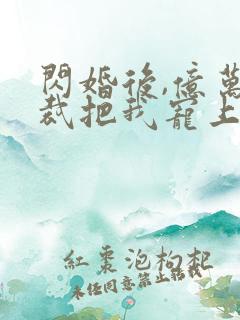 閃婚後,億萬
裁把我寵上
紅棗泡枸杞
未經同意禁止轉載